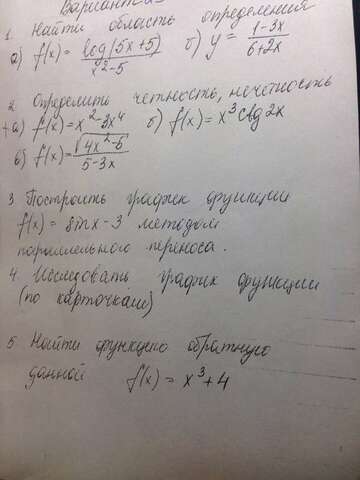 Вариант
1. Найти область определения
а) f(x) = log(5x+5) / x²-5 б) y = 1-3x / 6+2x
2. Определить четность, нечетность
+а) f(x) = x²-3x⁴ б) f(x) = x³ctg2x
в) f(x) = √4x²-6 / 5-3x
3 Построить график функции
f(x) = sinx-3 методом
параллельного переноса.
4. Исследовать график функции
(по карточкам)
5 Найти функцию обратную
данной f(x) = x³+4